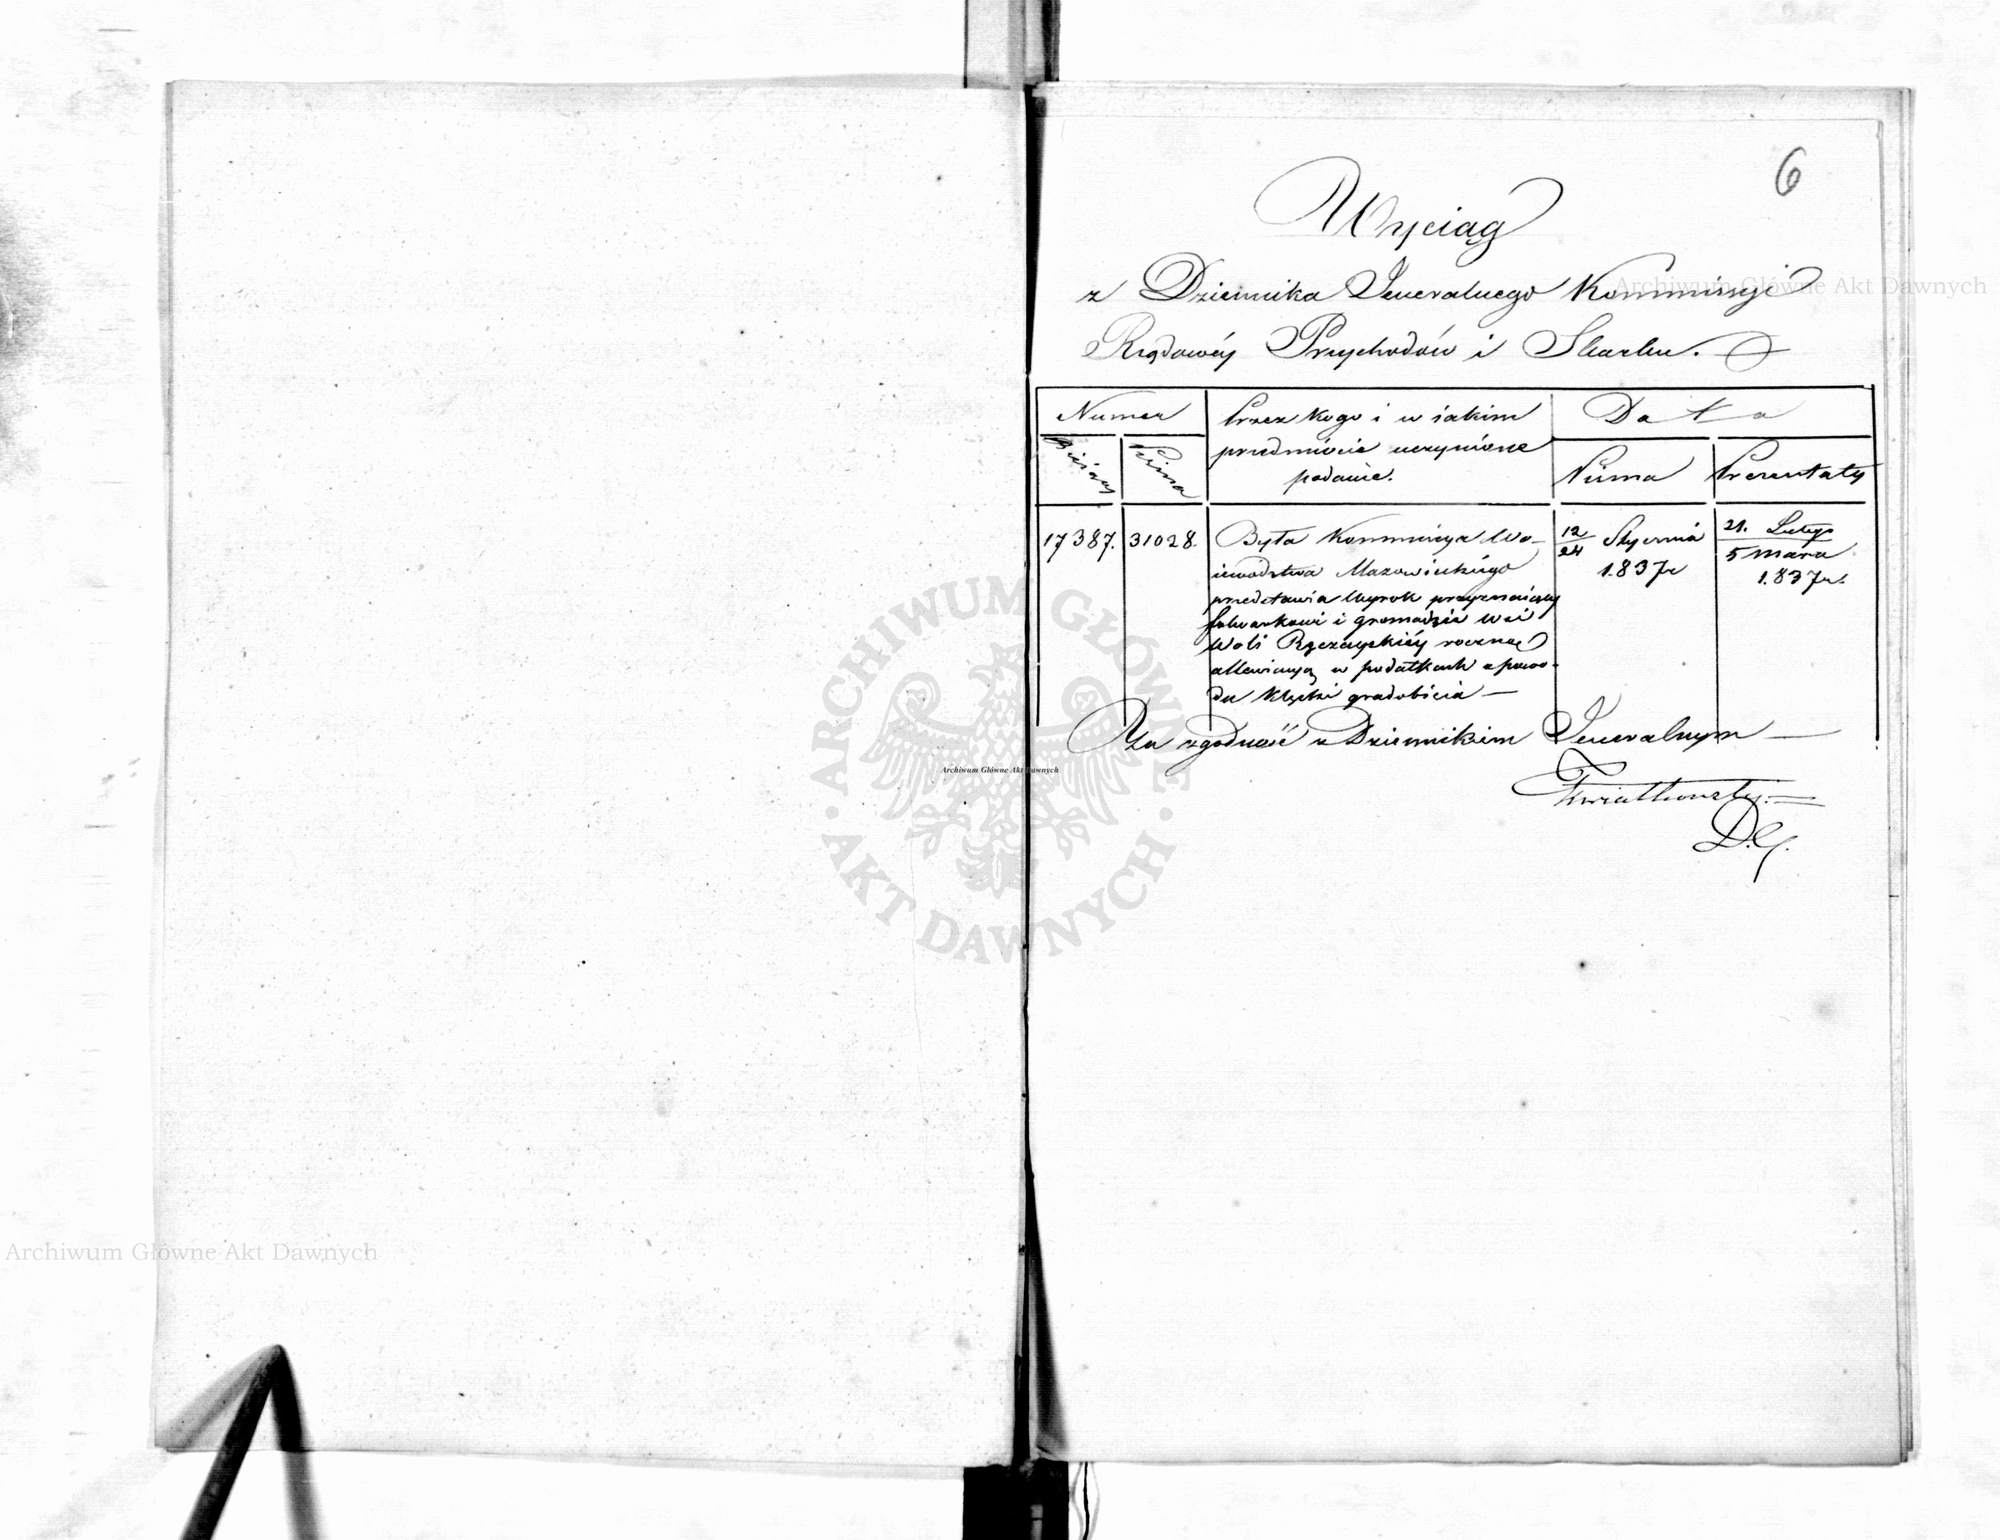 6
Wyciąg
z Dziennika Jeneralnego Kommissyi
Rządowéy Przychodów i Skarbu.
Numer
Przez kogo i w iakim
przedmiocie uczynione
podanie.
Data
Bieżący
Pisma
Pisma
Prezentaty
17387.
31028.
Była Kommissya Wo-
iewodztwa Mazowieckiego
przedstawia Wyrok przyznaiący
folwarkowi i gromadzie wsi
Woli Pęczayskiéy roczną
allewiacyą w podatkach z powo-
du klęski gradobicia —
12/24 Stycznia
1837r
21. Luteg
5 Marca
1.837r.
Za zgodność z Dziennikiem Jeneralnym —
Kwiatkowski
D.G.
ARCHIWUM GŁÓWNE AKT DAWNYCH
Archiwum Główne Akt Dawnych
Archiwum Główne Akt Dawnych
Archiwum Główne Akt Dawnych